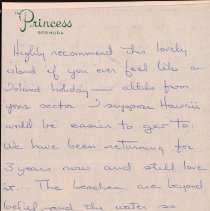 The
Princess
BERMUDA
Highly recommend this lovely
island if you ever feel like an
Island holiday — altho from
your sector I suppose Hawaii
would be easier to get to.
We have been returning for
3 years now and still love
it. The beaches are beyond
belief and the water so